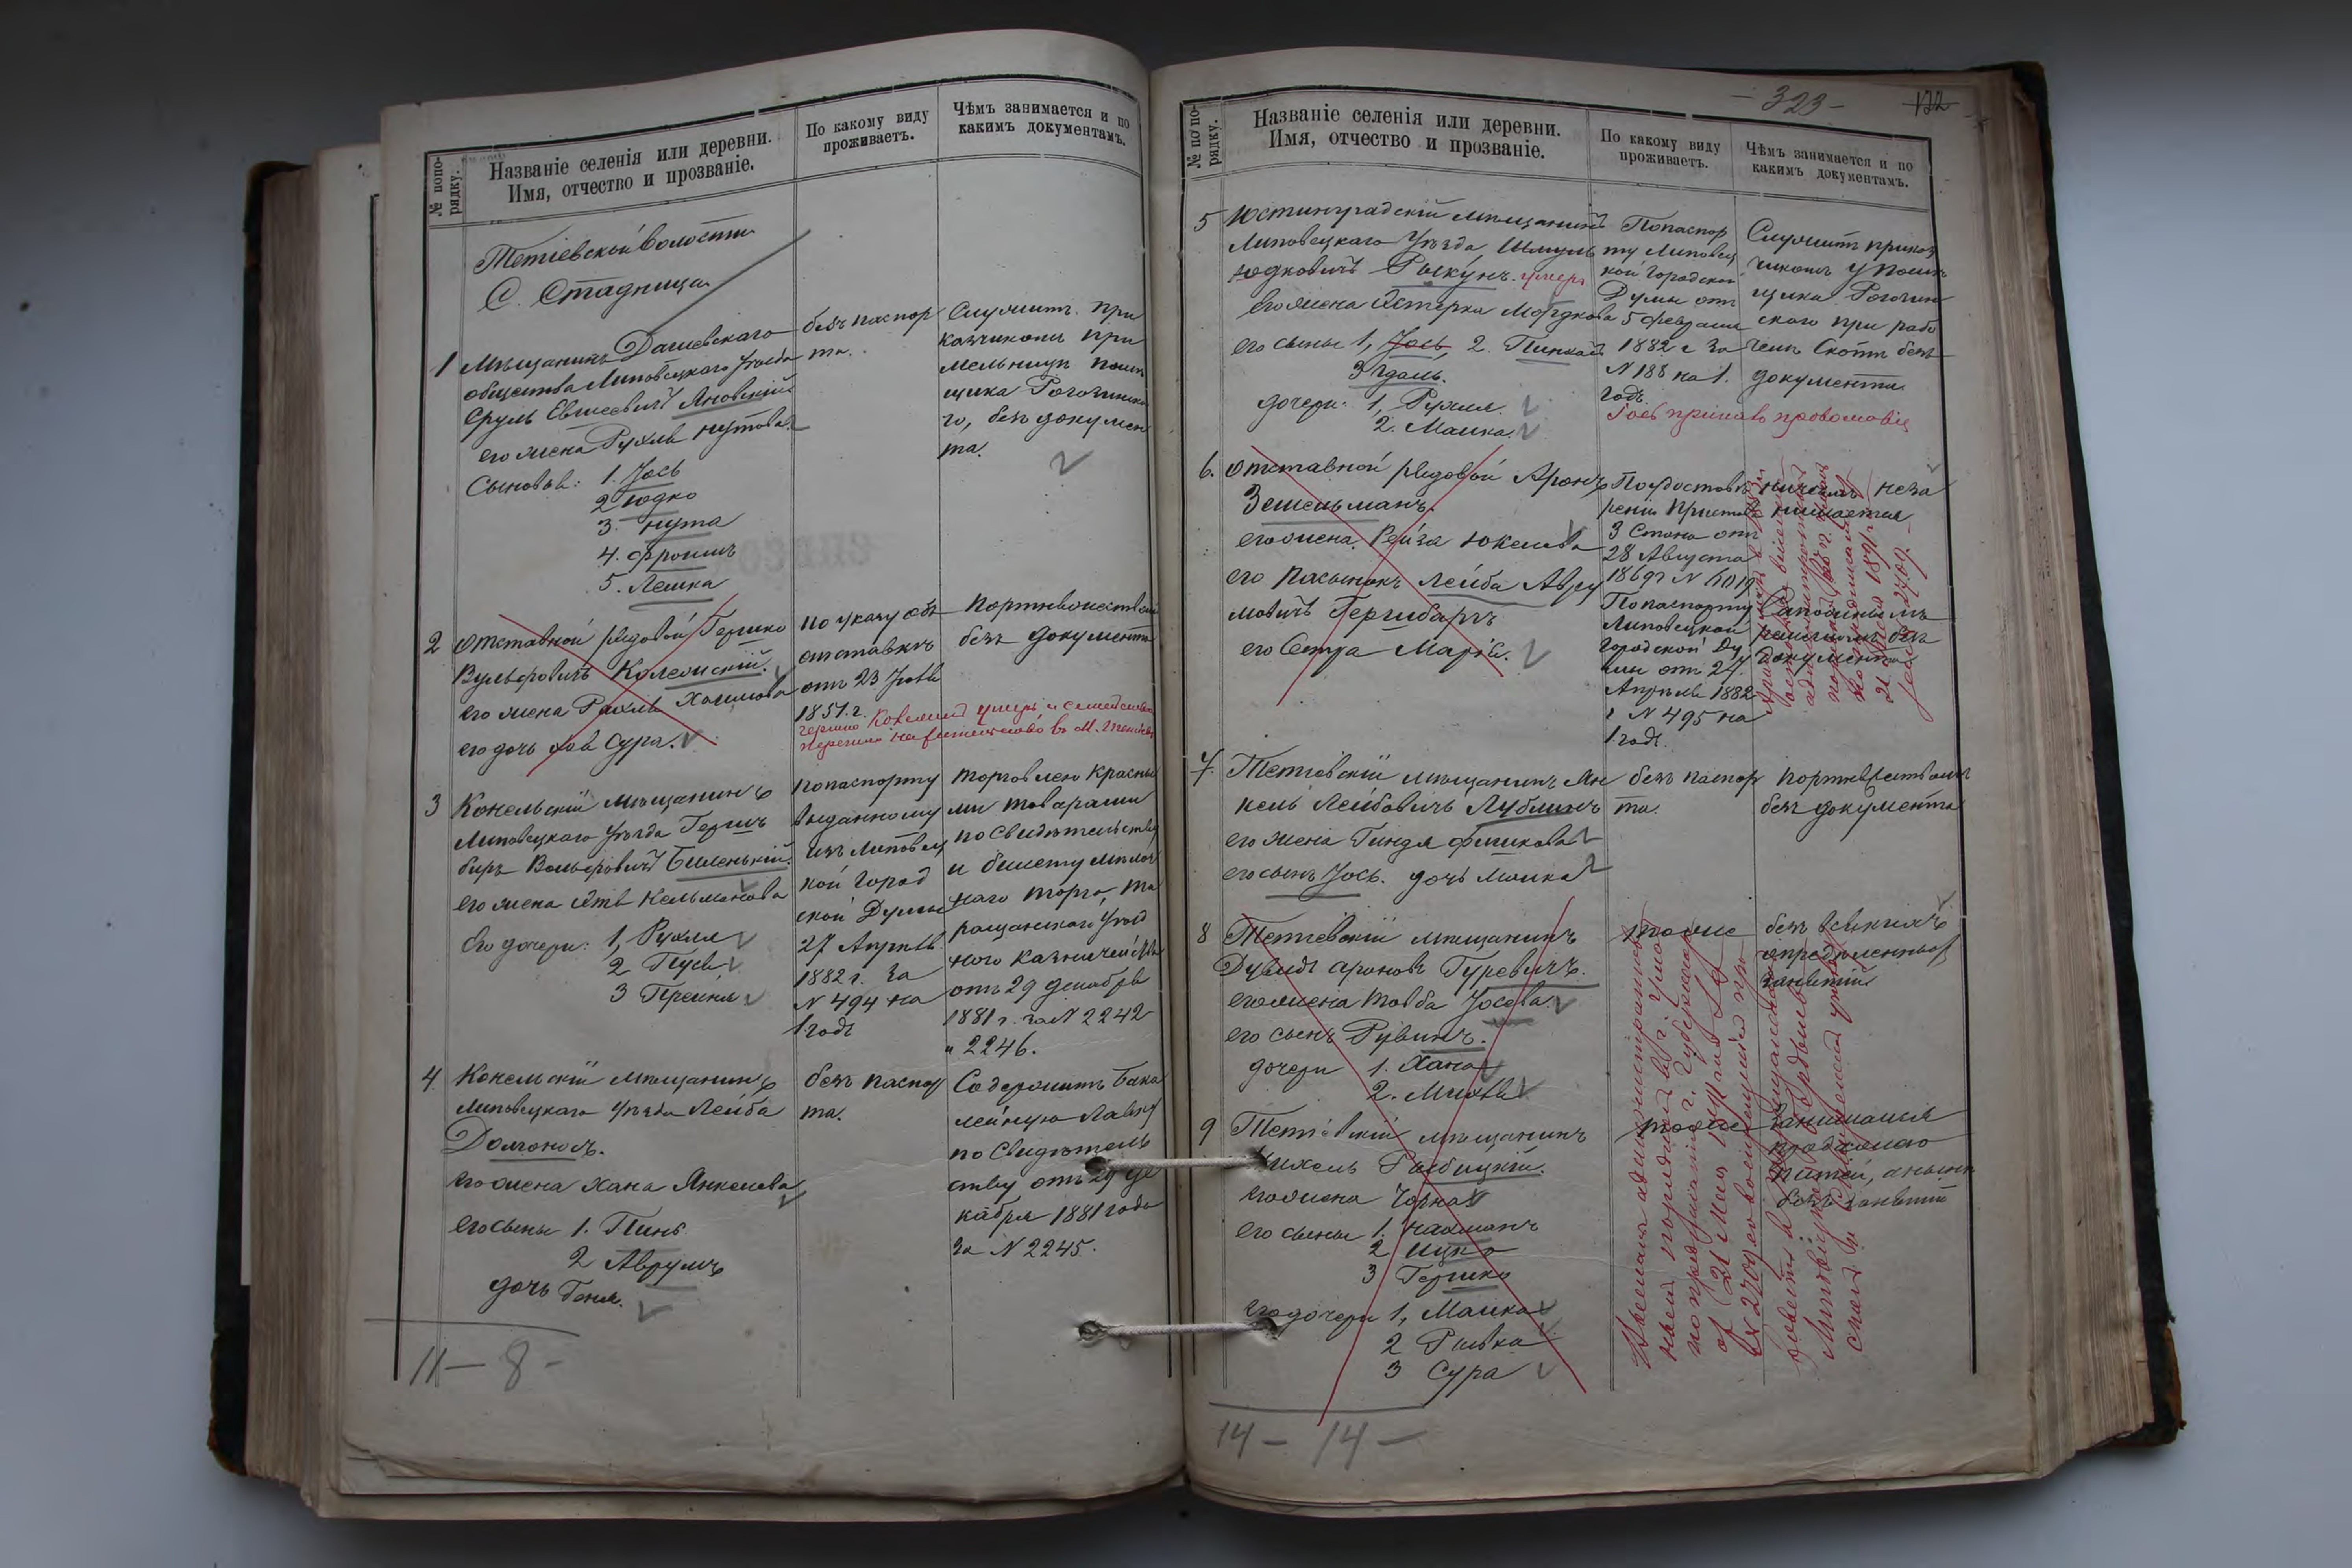 № попо-
рядку.
Названіе селенія или деревни.
Имя, отчество и прозваніе.
По какому виду
проживаетъ.
Чѣмъ занимается и по
какимъ документамъ.
Тетіевской волости
С. Стадница
1
Мѣщанинъ Дашевскаго
общества Липовецкаго Уѣзда
Сруль Евшеевичъ Яновскій
его жена Рухля Нутова
Сыновья: 1. Іось
2 Юдко
3. Нута
4. Фроимъ
5. Лейка
безъ паспор
та.
Служитъ при
казчикомъ при
мельницѣ помѣ
щика Рогозинска
го, безъ докумен
та.
2
отставной рядовой Гершко
Вульфовичъ
его жена Рахля Хаимова
его дочь Сура.
по указу объ
отставкѣ
отъ 23 Іюля
1851. г.
Портняжествомъ
безъ документа
Гершко умеръ и семейство
въ М. Тетіевъ
3
Конельскій мѣщанинъ
Липовецкаго Уѣзда Гершъ
беръ Вольфовичъ Биленькій.
его жена Этя Кельманова
Его дочери: 1, Рухля
2 Пуся
3 Прейня
попаспорту
выданному
изъ Липовец
кой Город
ской Думы
27 Апрѣля
1882 г. за
N 494 на
1 годъ
торговлею красны
ми товарами
по Свидѣтельству
и билету мѣлоч
наго торга, Та
ращанскаго Уѣзд
наго Казначейства
отъ 29 декабря
1881 г. за N 2242
и 2246.
4
Конельскій мѣщанинъ
Липовецкаго уѣзда Лейба
Долгоносъ.
его жена Хана Янкелева
его сыны 1. Пинь
2 Аврумъ
дочь Геня.
безъ паспор
та.
Содержитъ бака
лейную лавку
по Свидѣтель
ству отъ 29 де
кабря 1881 года
за N 2245.
11 — 8 -
- 323 -
122
№ по по-
рядку.
Названіе селенія или деревни.
Имя, отчество и прозваніе.
По какому виду
проживаетъ.
Чѣмъ занимается и по
какимъ документамъ.
5
Юстинградскій мѣщанинъ
Липовецкаго Уѣзда Шмуль
Юдковичъ Рыкунъ. умеръ
его жена Эстерка Мордкова
его сыны 1, Іось, 2. Пинхасъ
3 Идаль.
дочери: 1, Рухля.
2. Малка.
Попаспор
ту Липовец
кой Городской
Думы отъ
5 февраля
1882 г за
N 188 на 1.
годъ.
Служитъ приказ
чикомъ у помѣ
щика Рогозин
скаго при рабо
чемъ Скотѣ безъ
документа.
Іось принявъ православіе
6.
отставной рядовой Аронъ
Зешельманъ.
его жена Рейза Юкелева
его пасынокъ Лейба Авру
мовичъ Гершбаргъ
его Сестра Марія.
По удостовѣ
ренію Пристава
3 Стана отъ
28 Августа
1869 г N 4019
Попаспорту
Липовецкой
Городской Ду
мы отъ 27
Апрѣля 1882
г N 495 на
1 годъ.
ничѣмъ неза
нимается
Сапожнымъ
ремесломъ безъ
документа
21 Мая 1891 г
7.
Тетіевскій мѣщанинъ Ян
кель Лейбовичъ Лублинъ
его жена Гиндя Фишкова
его сынъ Іось. дочь Малка
безъ паспор
та.
портняжествомъ
безъ документа
8
Тетіевскій мѣщанинъ
Дувидъ Ароновъ Гуревичъ.
его жена Товба Іосева.
его сынъ Рувинъ.
дочери 1. Хана
2. Михля
тоже
безъ всякихъ
опредѣленныхъ
занятій
9
Тетіевскій мѣщанинъ
Михель Рыбицкій.
его жена Чарна
его сыны 1. Нахманъ
2 Ицко
3 Гершко
его дочери 1, Малка
2 Рывка
3 Сура
тоже
занимался
продажею
питей, а нынѣ
безъ занятій
14 - 14 -